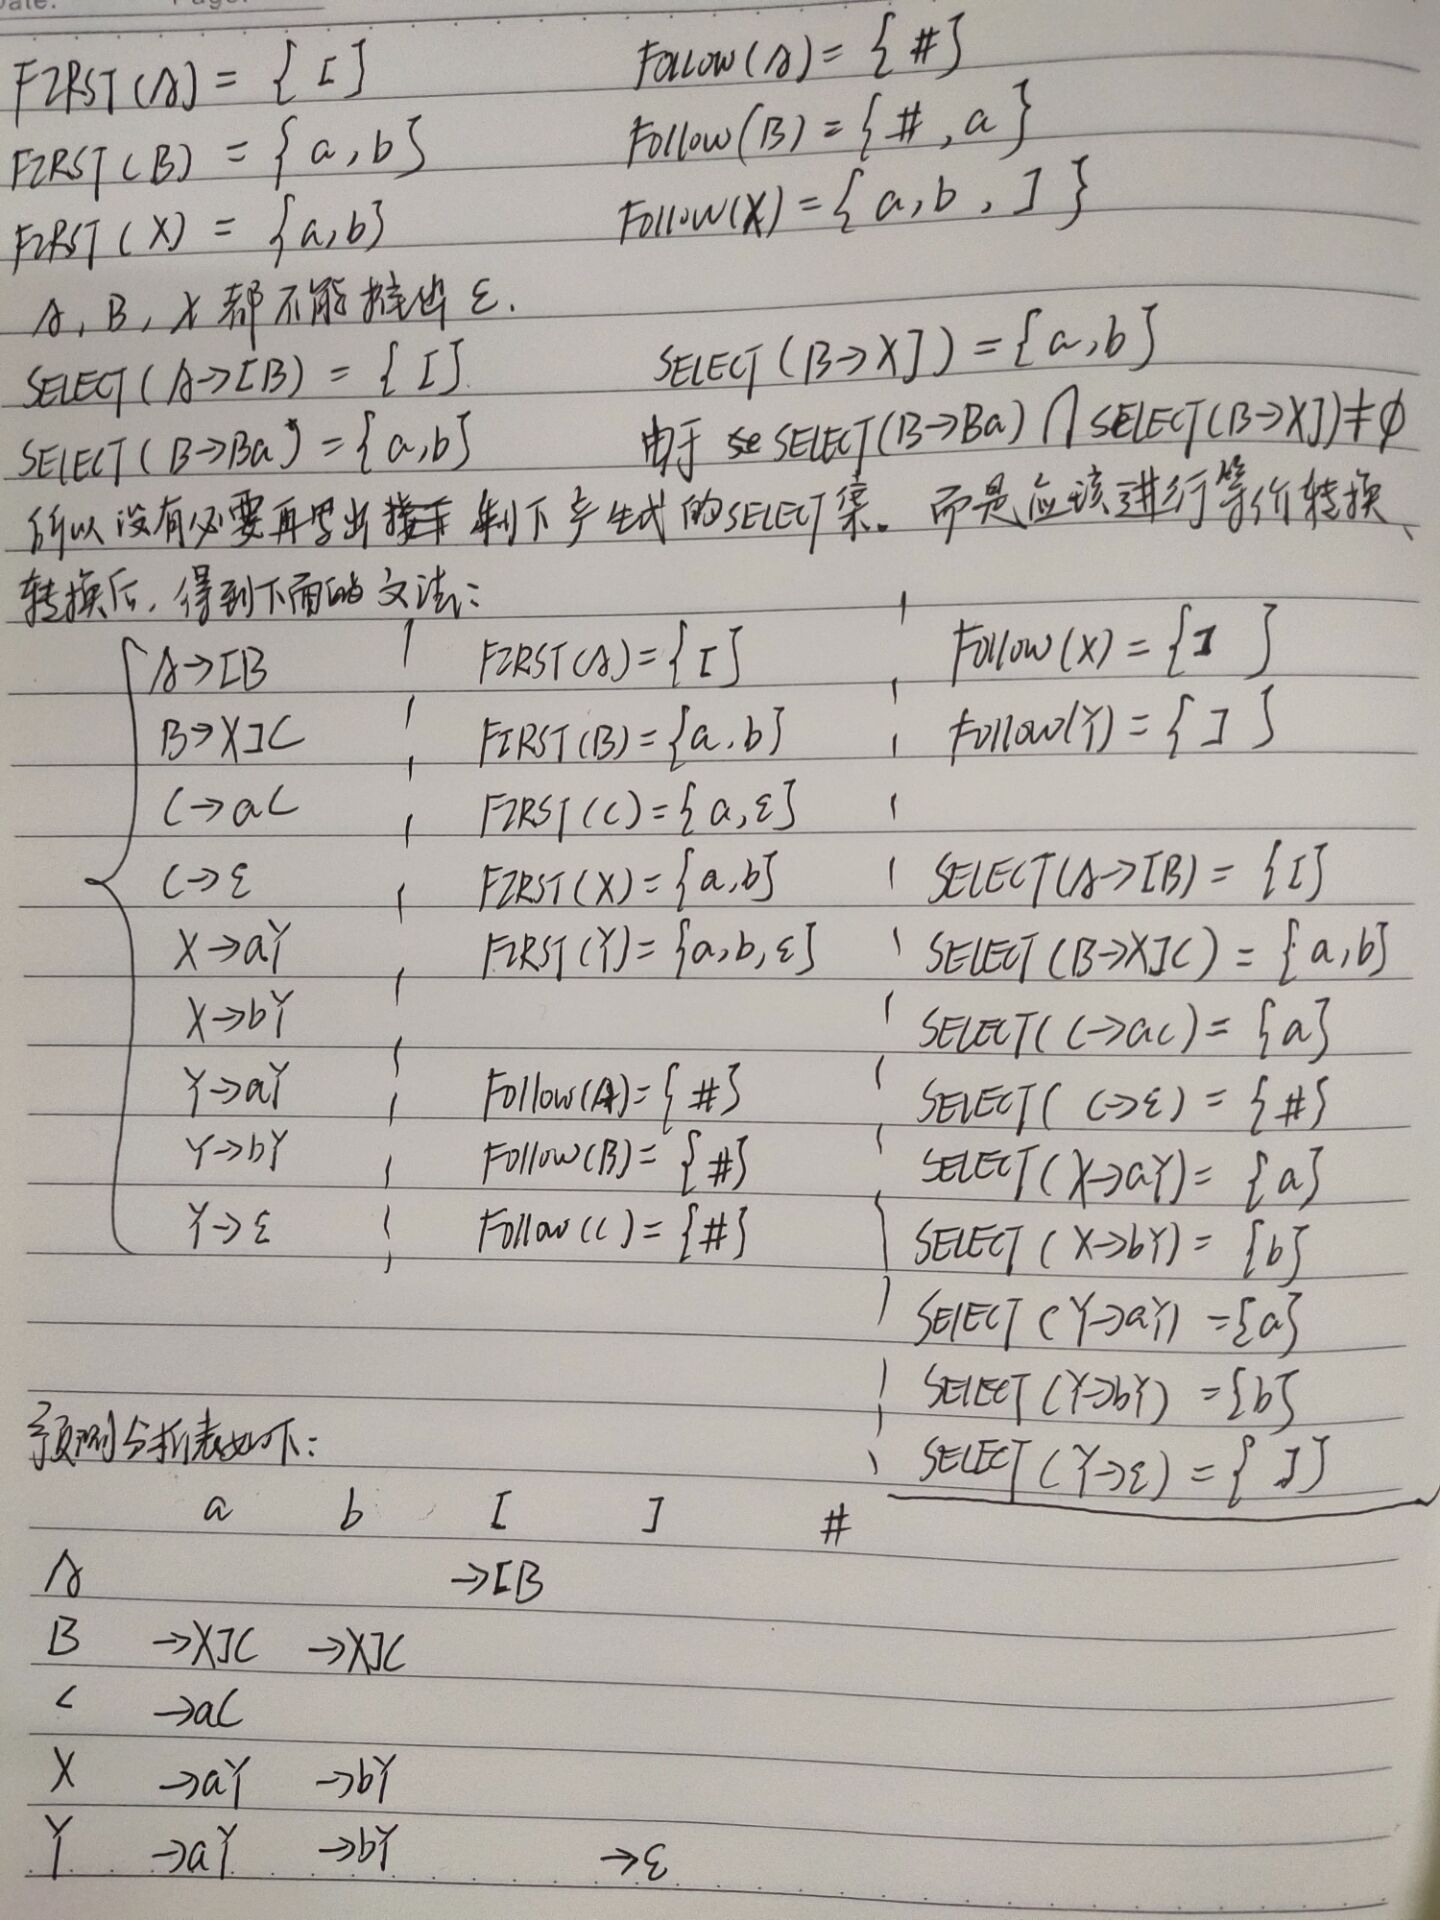 Date: Page:
FIRST(A) = { [ } Follow(A) = { # }
FIRST(B) = { a, b } Follow(B) = { #, a }
FIRST(X) = { a, b } Follow(X) = { a, b, ] }
A, B, X 都不能推出 ε.
SELECT(A→[B) = { [ } SELECT(B→X]) = { a, b }
SELECT(B→Ba) = { a, b } 由于 SELECT(B→Ba) ∩ SELECT(B→X]) ≠ ∅
所以没有必要再写出剩下产生式的SELECT集。而是应该进行等价转换、
转换后,得到下面的文法:
A→[B FIRST(A) = { [ } Follow(X) = { ] }
B→X]C FIRST(B) = { a, b } Follow(Y) = { ] }
C→aC FIRST(C) = { a, ε }
C→ε FIRST(X) = { a, b } SELECT(A→[B) = { [ }
X→aY FIRST(Y) = { a, b, ε } SELECT(B→X]C) = { a, b }
X→bY SELECT(C→aC) = { a }
Y→aY Follow(A) = { # } SELECT(C→ε) = { # }
Y→bY Follow(B) = { # } SELECT(X→aY) = { a }
Y→ε Follow(C) = { # } SELECT(X→bY) = { b }
SELECT(Y→aY) = { a }
SELECT(Y→bY) = { b }
预测分析表如下: SELECT(Y→ε) = { ] }
a b [ ] #
A →[B
B →X]C →X]C
C →aC
X →aY →bY
Y →aY →bY →ε